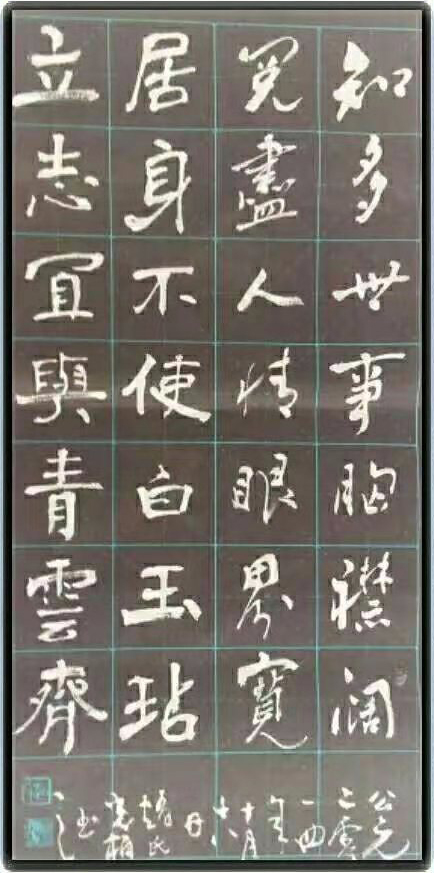 知多世事胸襟阔
阅盡人情眼界寬
居身不使白玉玷
立志宜與青雲齊
公元
二零
一四
年
十月
日